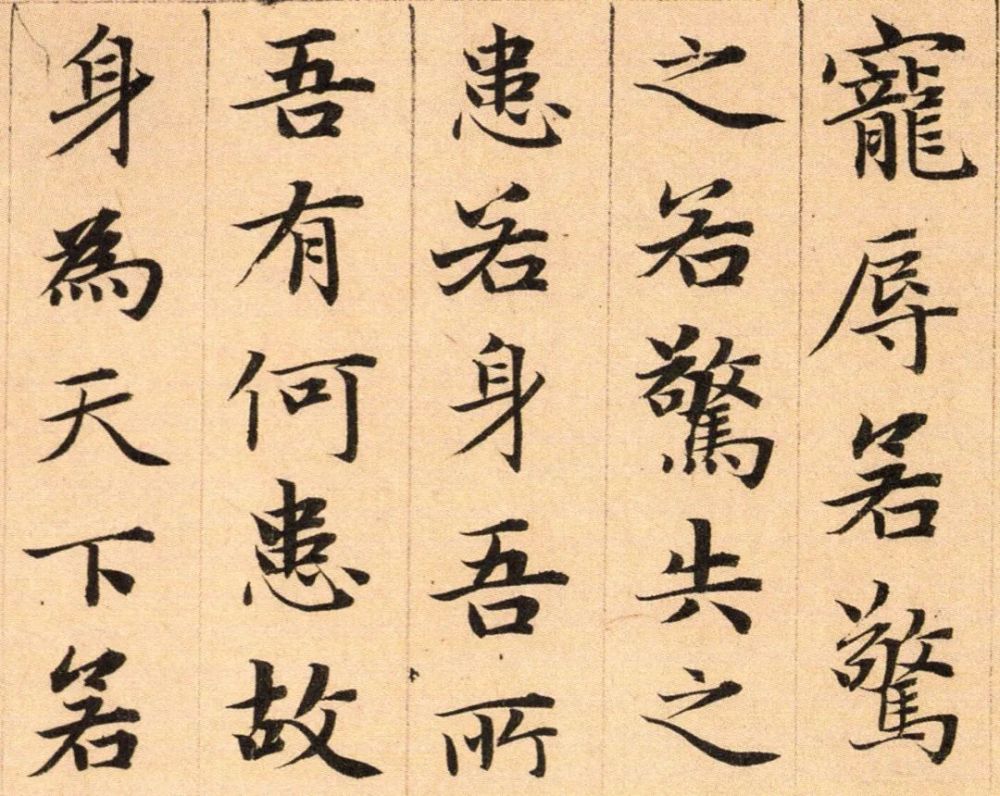 寵辱若驚
之若驚失之
患若身吾所
吾有何患故
身為天下若